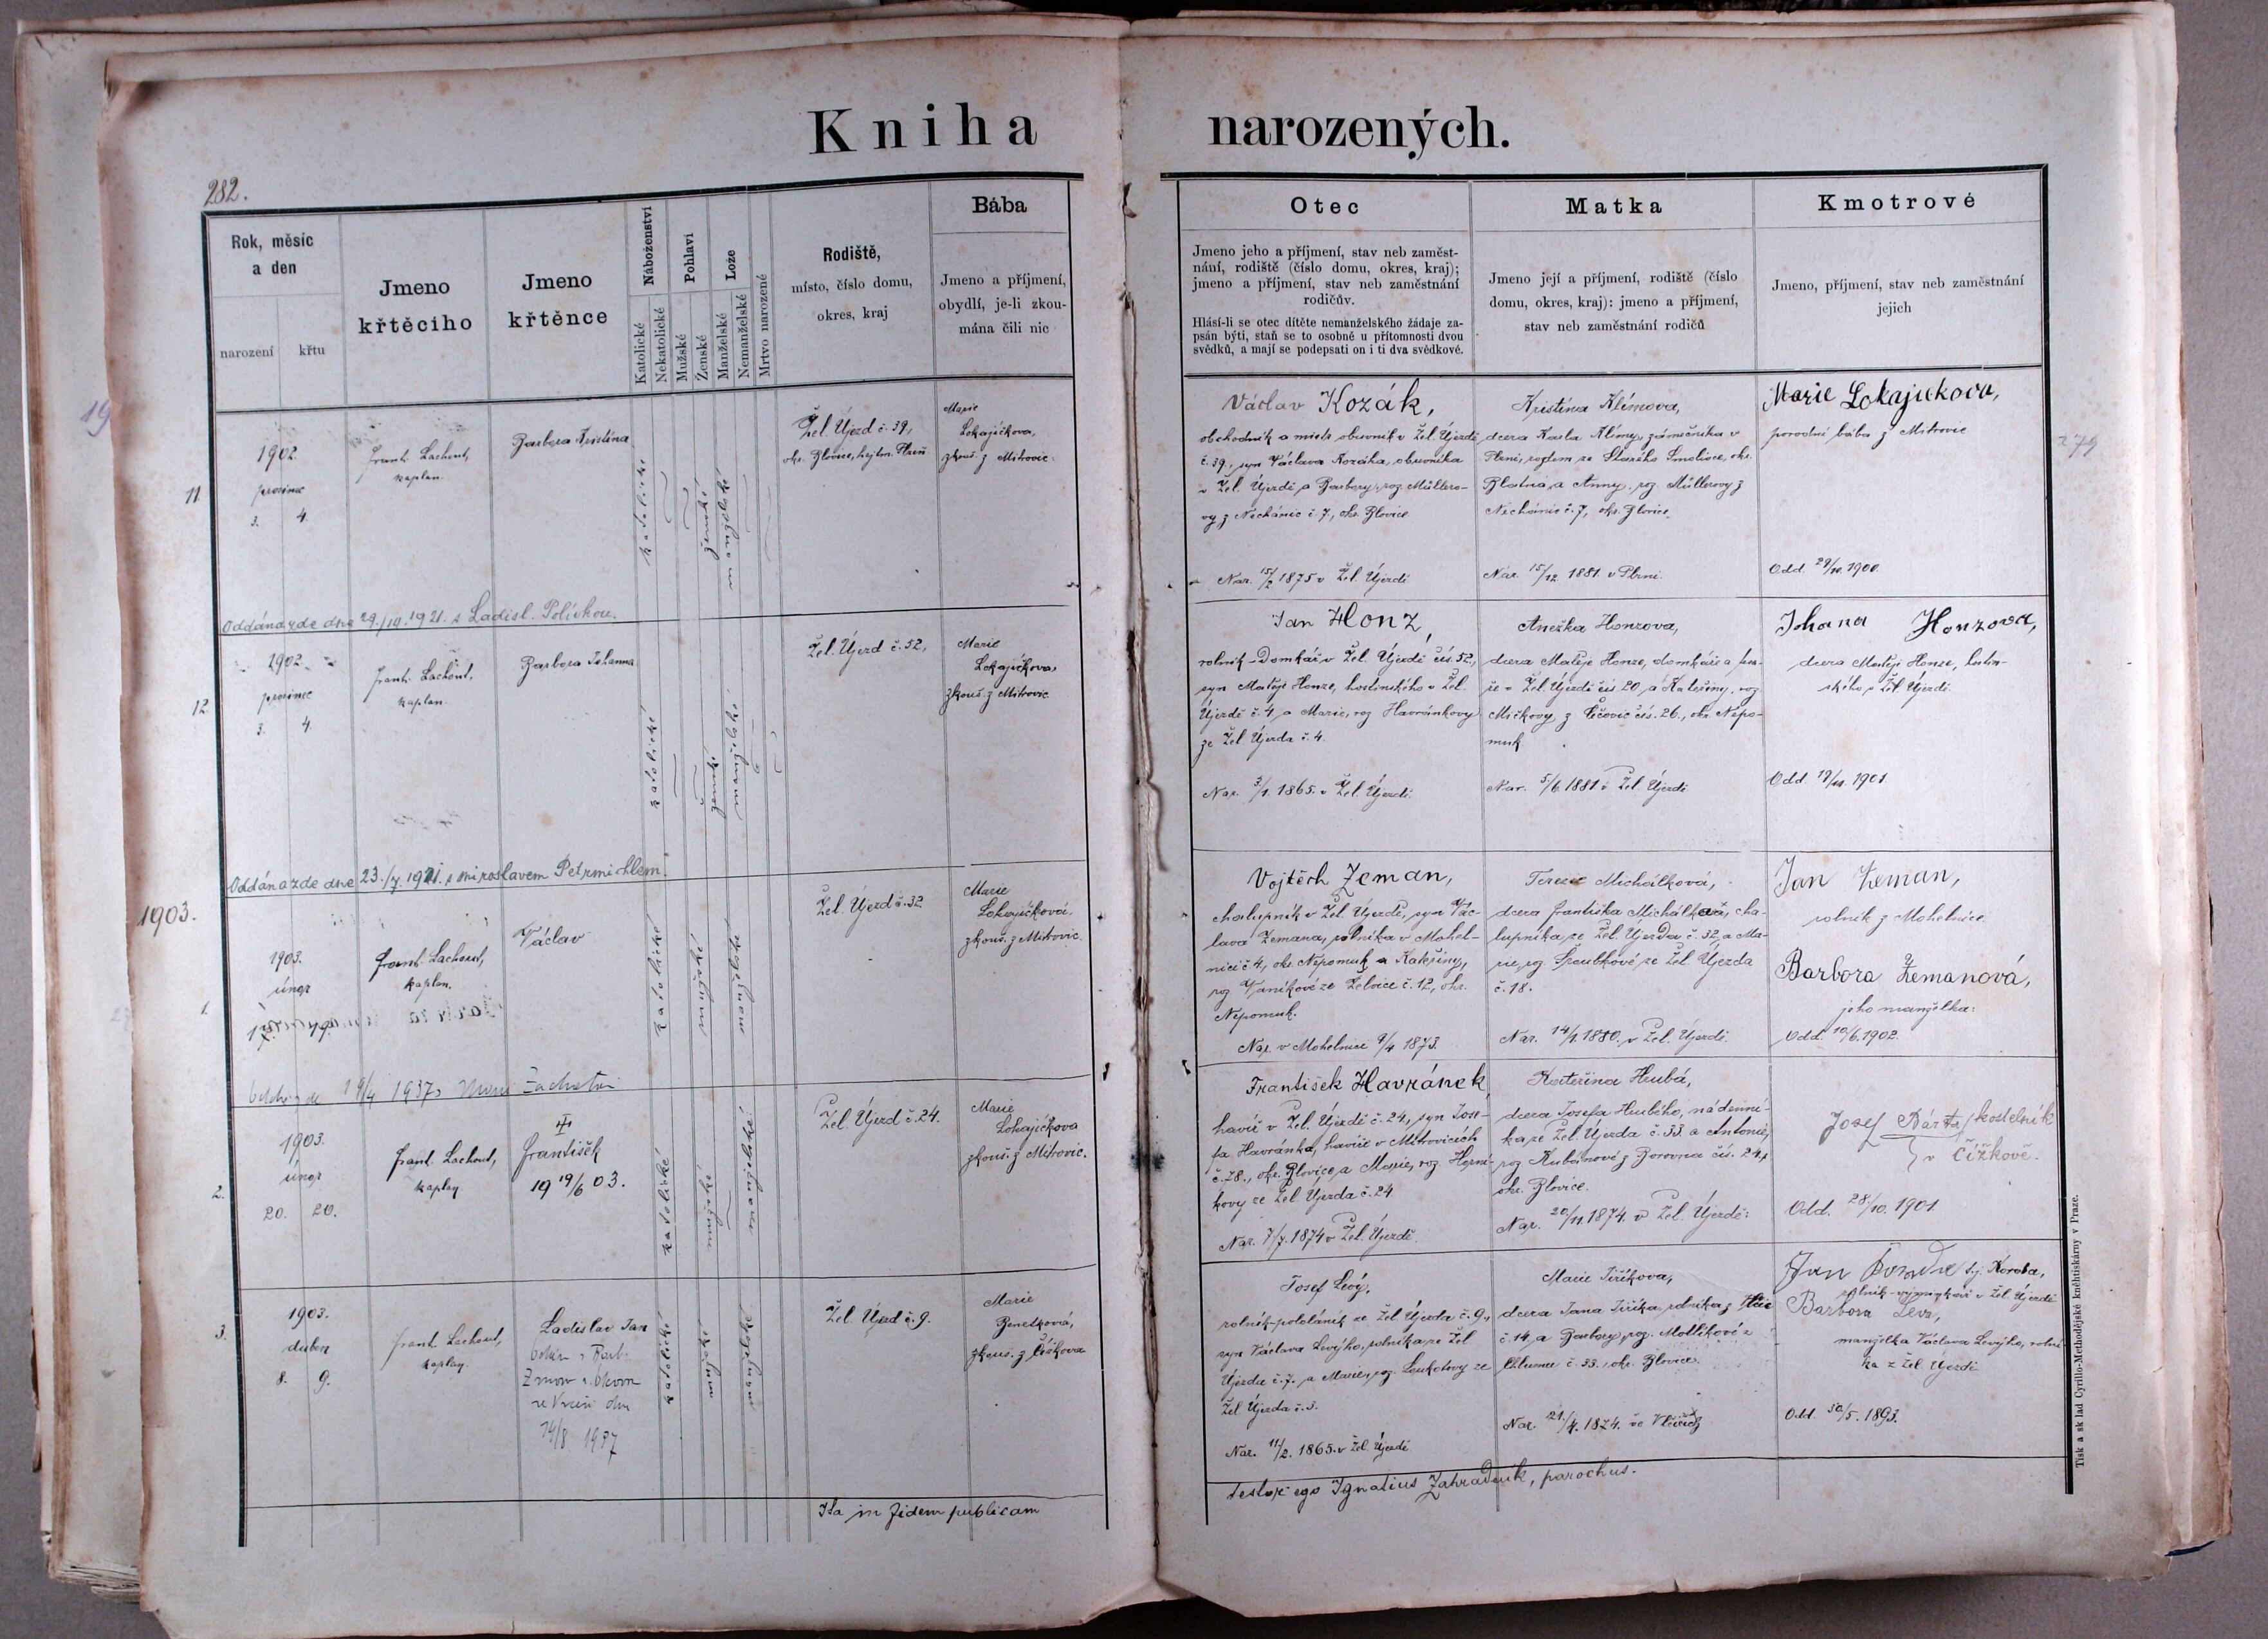 Kniha narozených.
282.
Rok, měsíc
a den
narození
křtu
Jmeno
křtěcího
Jmeno
křtěnce
Náboženství
Katolické
Nekatolické
Pohlaví
Mužské
Ženské
Lože
Manželské
Nemanželské
Mrtvo narozené
Rodiště,
místo, číslo domu,
okres, kraj
Bába
Jmeno a příjmení,
obydlí, je-li zkou-
mána čili nic
Otec
Jmeno jeho a příjmení, stav neb zaměst-
nání, rodiště (číslo domu, okres, kraj);
jmeno a příjmení, stav neb zaměstnání
rodičův.
Hlásí-li se otec dítěte nemanželského žádaje za-
psán býti, staň se to osobně u přítomnosti dvou
svědků, a mají se podepsati on i ti dva svědkové.
Matka
Jmeno její a příjmení, rodiště (číslo
domu, okres, kraj): jmeno a příjmení,
stav neb zaměstnání rodičů
Kmotrové
Jmeno, příjmení, stav neb zaměstnání
jejich
11
1902.
prosinec
3. 4.
Frant. Lachout,
kaplan.
Barbora Kristina
katolické
ženské
manželské
Žel. Újezd č. 39,
okr. Blovice, hejtm. Plzeň
Marie
Lokajíčkova,
zkouš. z Mitrovic.
Václav Kozák,
obchodník a mistr obuvník v Žel. Újezdě
č. 39., syn Václava Kozáka, obuvníka
v Žel. Újezdě a Barbory, roz. Müllero-
vy z Nechánic č. 7, okr. Blovice
Nar. 15/2 1875 v Žel. Újezdě
Kristina Klímova,
dcera Karla Klímy, zámečníka v
Plzni, rodem ze Starého Smolivce, okr.
Blatná a Anny, roz. Müllerovy z
Nechánic č. 7, okr. Blovice.
Nar. 15/12 1881. v Plzni.
Marie Lokajickova,
porodní bába z Mitrovic
Odd. 29/10. 1900.
279
Oddána zde dne 29./10. 1921. s Ladisl. Polívkou.
12
1902.
prosinec
3. 4.
Frant. Lachout,
kaplan.
Barbora Johanna
katolické
ženské
manželské
Žel. Újezd č. 52,
Marie
Lokajíčkova,
zkouš. z Mitrovic
Jan Honz,
rolník-Domkář v Žel. Újezdě čís. 52,
syn Matěje Honze, hostinského v Žel.
Újezdě č. 4 a Marie, roz. Havránkovy
ze Žel. Újezda č. 4.
Nar. 3/1. 1865. v Žel. Újezdě.
Anežka Honzova,
dcera Matěje Honze, domkáře a
v Žel. Újezdě čís. 20, a Kateřiny, roz.
Mičkovy, z čís. 26., okr. Nepo-
muk
Nar. 5/6 1881. v Žel. Újezdě
Johana Honzova,
dcera Matěje Honze, hostin-
ského z Žel. Újezdě.
Odd. 19/11. 1901.
Oddána zde dne 23./7. 1921. s Miroslavem Petrmichlem.
1903.
1.
1903.
únor
Frant. Lachout,
kaplan.
Václav
katolické
mužské
manželské
Žel. Újezd č. 32
Marie
Lokajíčková,
zkouš. z Mitrovic.
Vojtěch Zeman,
chalupník v Žel. Újezdě, syn Vác-
lava Zemana, rolníka v Mohel-
nici č. 4, okr. Nepomuk a Kateřiny,
roz. Vaníkové ze Želvice č. 12, okr.
Nepomuk.
Nar. v Mohelnici 9/4 1873.
Terezie Michálková,
dcera Františka Michálka, cha-
lupníka, ze Žel. Újezda č. 32, a Ma-
rie, roz. Špeubkové, ze Žel. Újezda
č. 18.
Nar. 14/1. 1880. v Žel. Újezdě.
Jan Zeman,
rolník z Mohelnice.
Barbora Zemanová,
jeho manželka.
Odd. 10/6. 1902.
19/4 1937
2.
1903.
únor
20. 20.
Frant. Lachout,
kaplan
František
19 19/6 03.
katolické
mužské
manželské
Žel. Újezd č. 24.
Marie
Lokajíčkova
zkouš. z Mitrovic.
František Havránek,
havíř v Žel. Újezdě č. 24, syn Jose-
fa Havránka, havíře v Mitrovicích
č. 78., okr. Blovice, a Marie, roz.
kovy ze Žel. Újezda č. 24
Nar. 7/7. 1874 v Žel. Újezdě
Kateřina Hrubá,
dcera Josefa Hrubého, nádenní-
ka, ze Žel. Újezda č. 33. a Antonie,
roz. Kubánové z Borovna čís. 24,
okr. Blovice.
Nar. 20/11. 1874. v Žel. Újezdě.
Josef Bárta, kostelník
v Čížkově.
Odd. 28/10. 1901.
3.
1903.
duben
8. 9.
Frant. Lachout,
kaplan.
Ladislav Jan
14/8 1937
katolické
mužské
manželské
Žel. Újezd č. 9.
Marie
Benetková,
zkouš. z Čížkova
Josef Levý,
rolník-pololáník ze Žel. Újezda č. 9.,
syn Václava Levýho, rolníka, ze Žel.
Újezda č. 7. a Marie, roz. Loukotovy ze
Žel. Újezda č. 3.
Nar. 11/2. 1865. v Žel. Újezdě
Marie Jiříkova,
dcera Jana Jiříka, rolníka z
č. 14, a Barbory, roz. Motlíkové z
Chlumu č. 33., okr. Blovice.
Nar. 21./4. 1874. ve
Jan Koroba t.j. Koroba,
rolník-výměnkář v Žel. Újezdě
Barbora Leva,
manželka Václava Levýho, rolní-
ka z Žel. Újezdě
Odd. 30/5. 1893.
Ita in fidem publicam testor ego Ignatius Zahradník, parochus.
Tisk a sklad Cyrillo-Methodějské knihtiskárny v Praze.